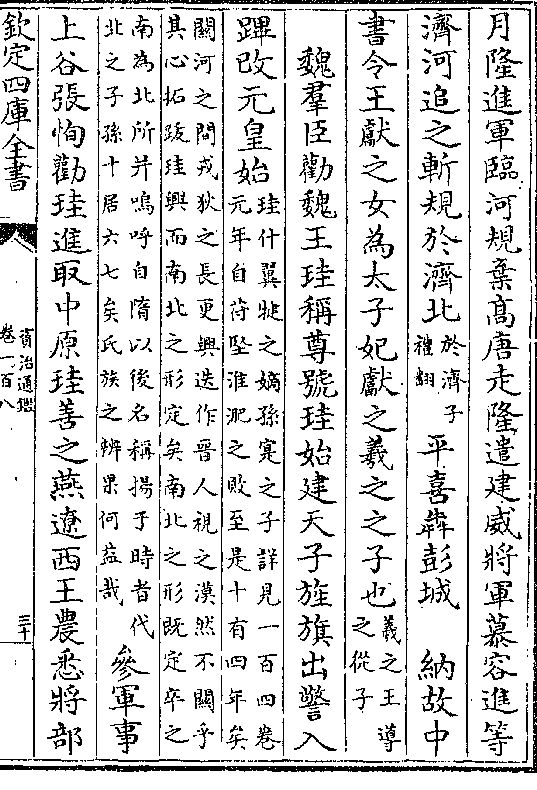 月隆進軍臨河規棄髙唐走隆遣建威將軍慕容進等
濟河追之斬規於濟北於濟子禮翻平喜犇彭城　納故中
書令王獻之女為太子妃獻之羲之之子也羲之王導之從子
魏羣臣勸魏王珪稱尊號珪始建天子旌旗出警入
蹕改元皇始珪什翼犍之嫡孫寔之子詳見一百四卷元年自苻堅淮淝之敗至是十有四年矣
關河之間戎狄之長更興迭作晉人視之漠然不關乎其心拓跋珪興而南北之形定矣南北之形既定卒之
南為北所并嗚呼自隋以後名稱揚于時者代北之子孫十居六七矣氏族之辨果何益哉參軍事
上谷張恂勸珪進取中原珪善之燕遼西王農悉將部
欽定四庫全書
資治通鑑
卷一百八
三十